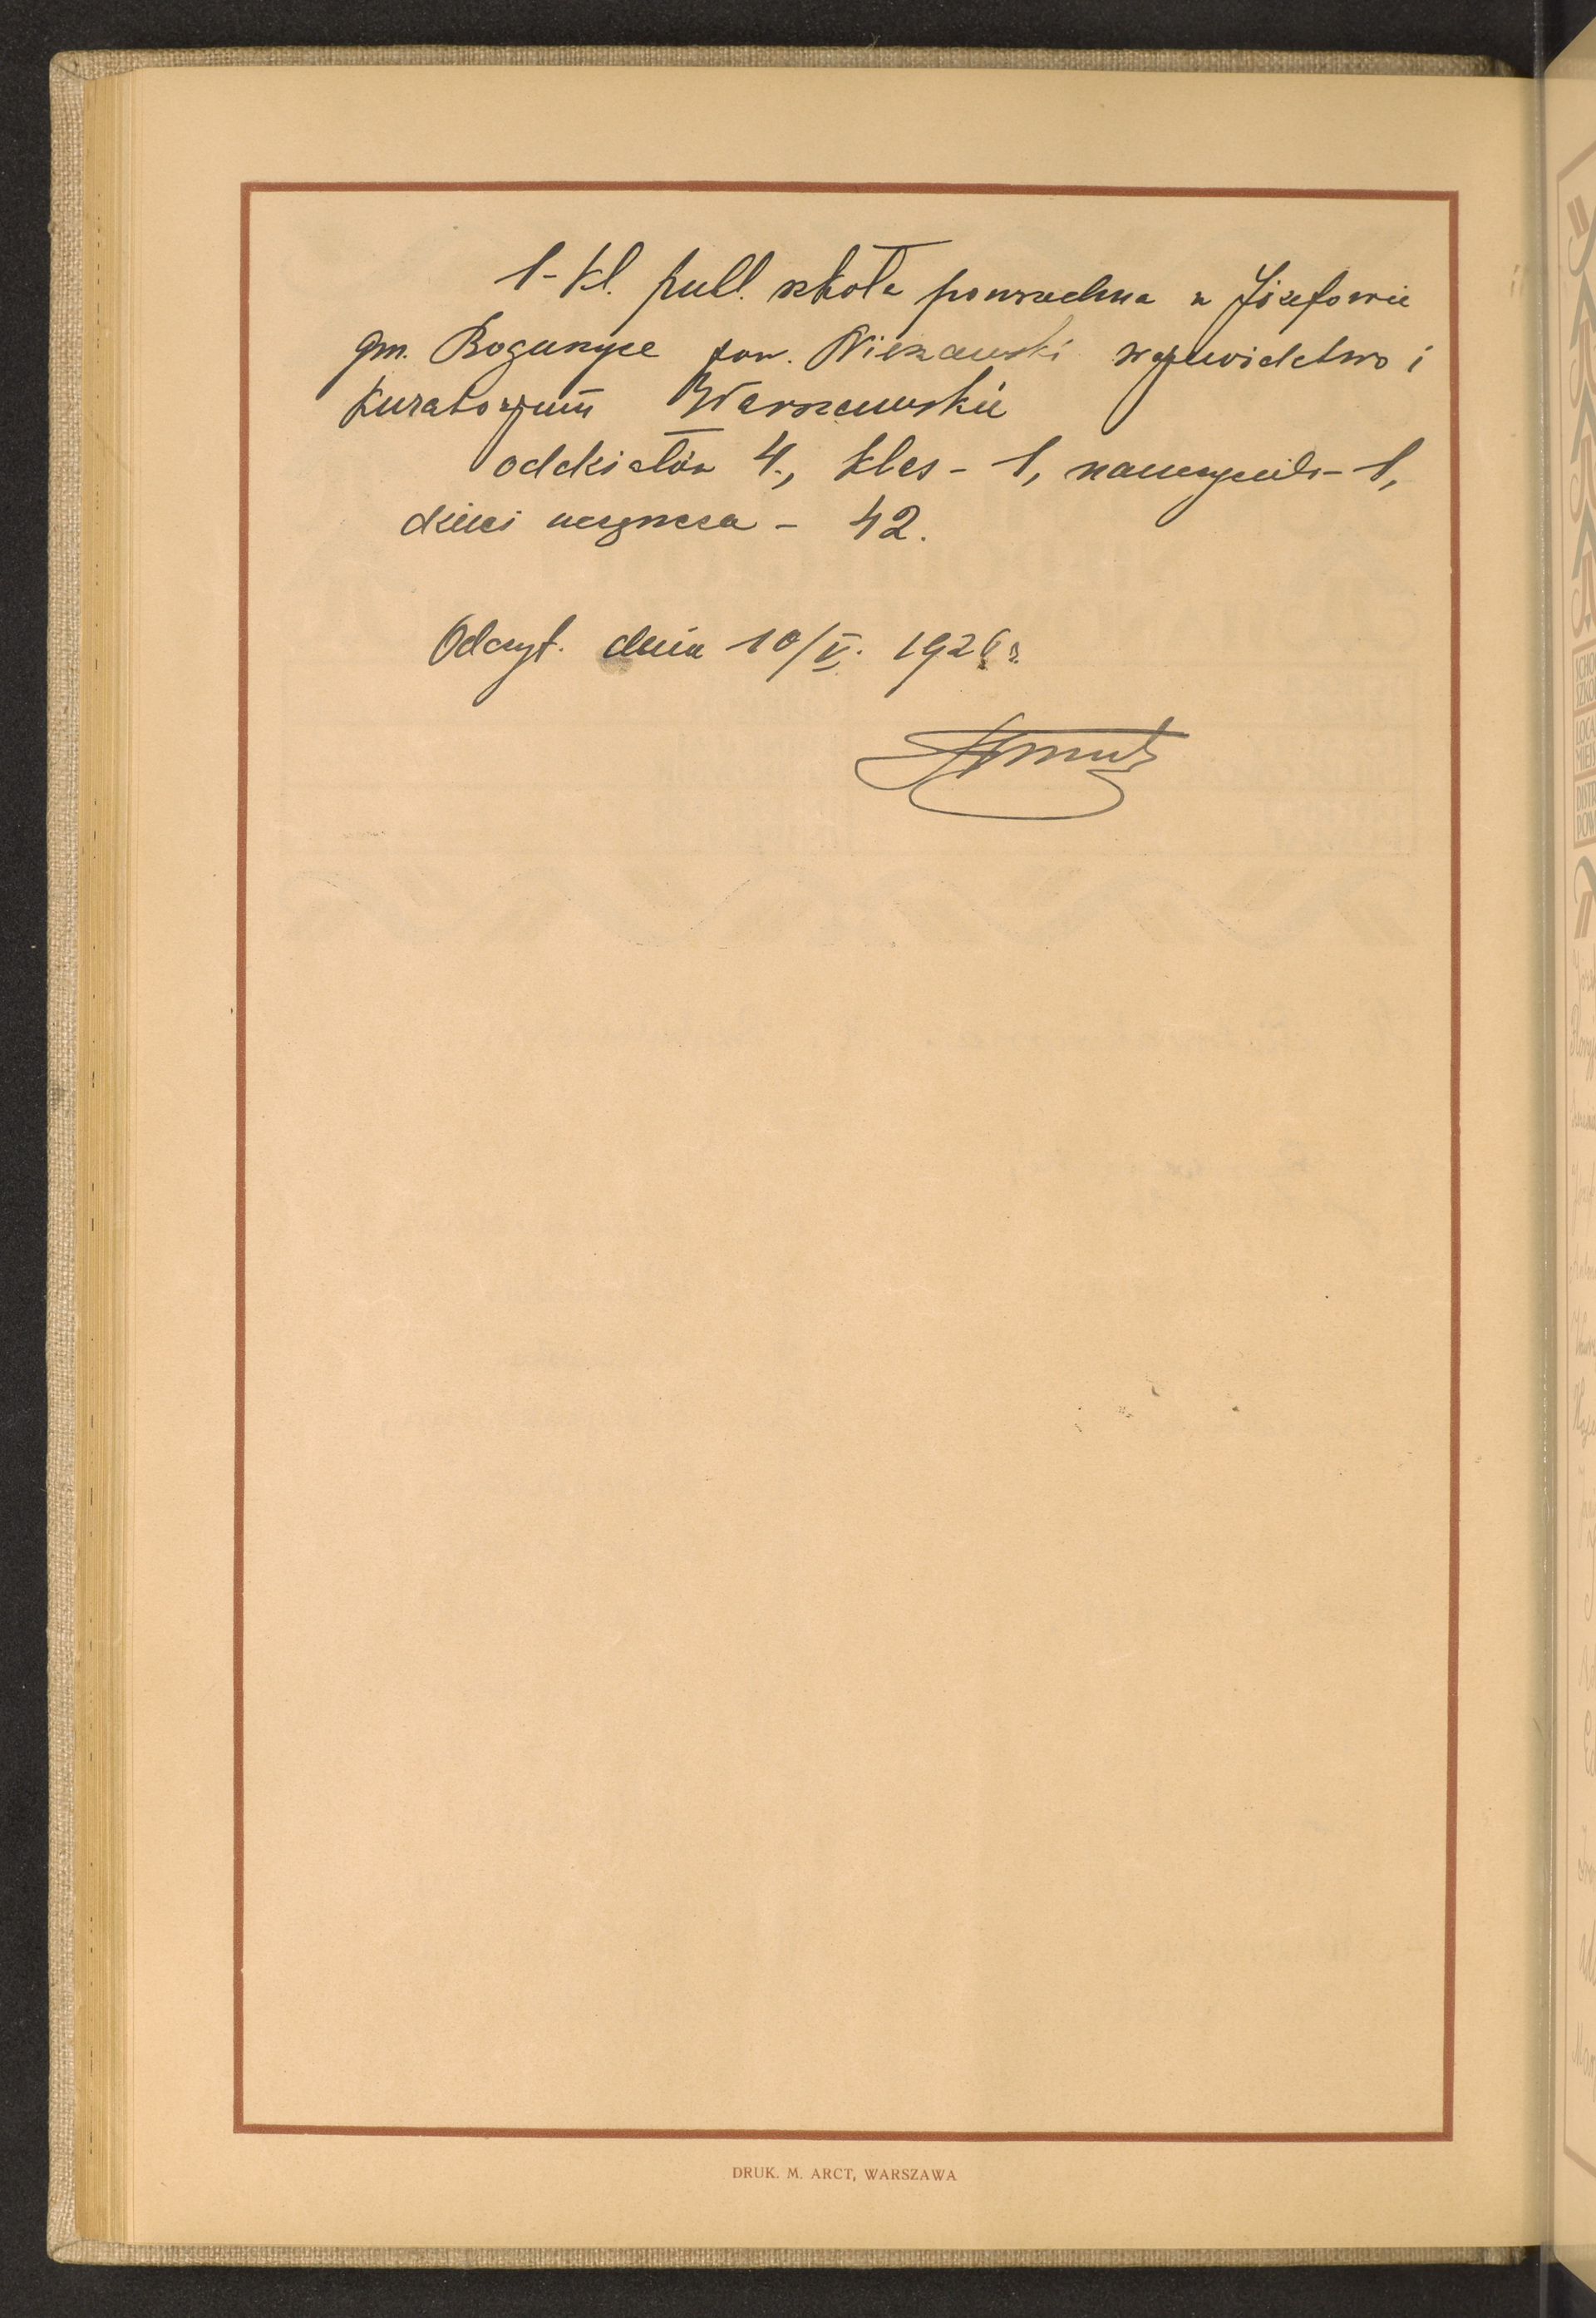 1-kl. publ. szkoła powszechna w Józefowie
gm. Boguszyce pow. Nieszawski województwo i
Kuratorjum Warszawskie
oddziałów 4, klas - 1, nauczycieli - 1,
dzieci uczęszcza - 42.
Odczyt. dnia 10/V. 1926 r.
DRUK. M. ARCT, WARSZAWA